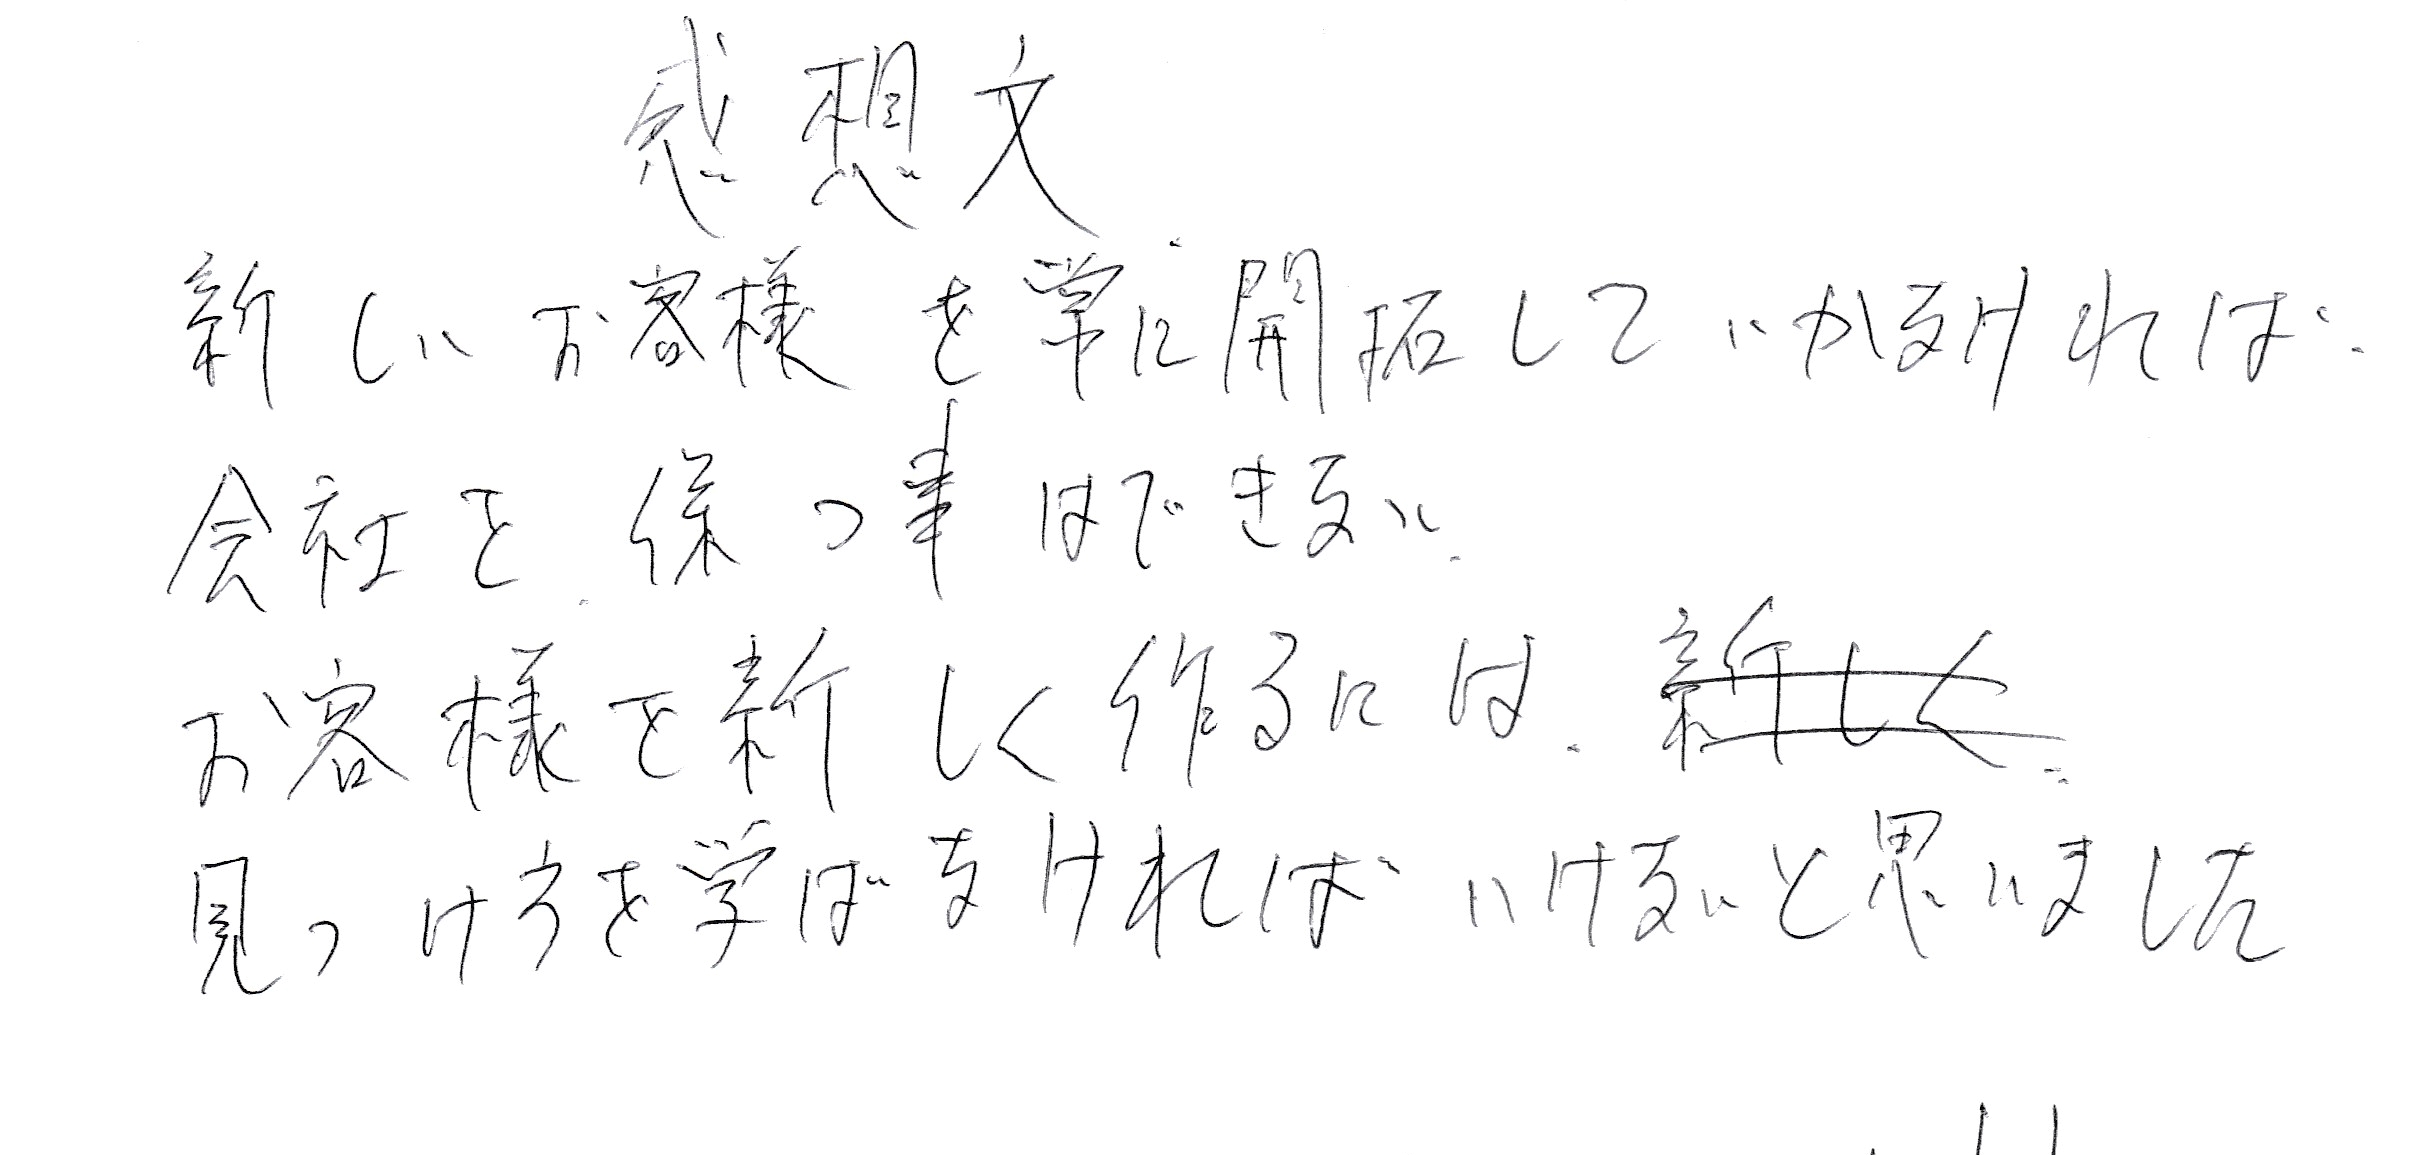 感想文
新しいお客様を常に開拓していかなければ、
会社を保つ事はできない、
お客様を新しく作るには、新しく、
見つけ方を学ばなければいけないと思いました